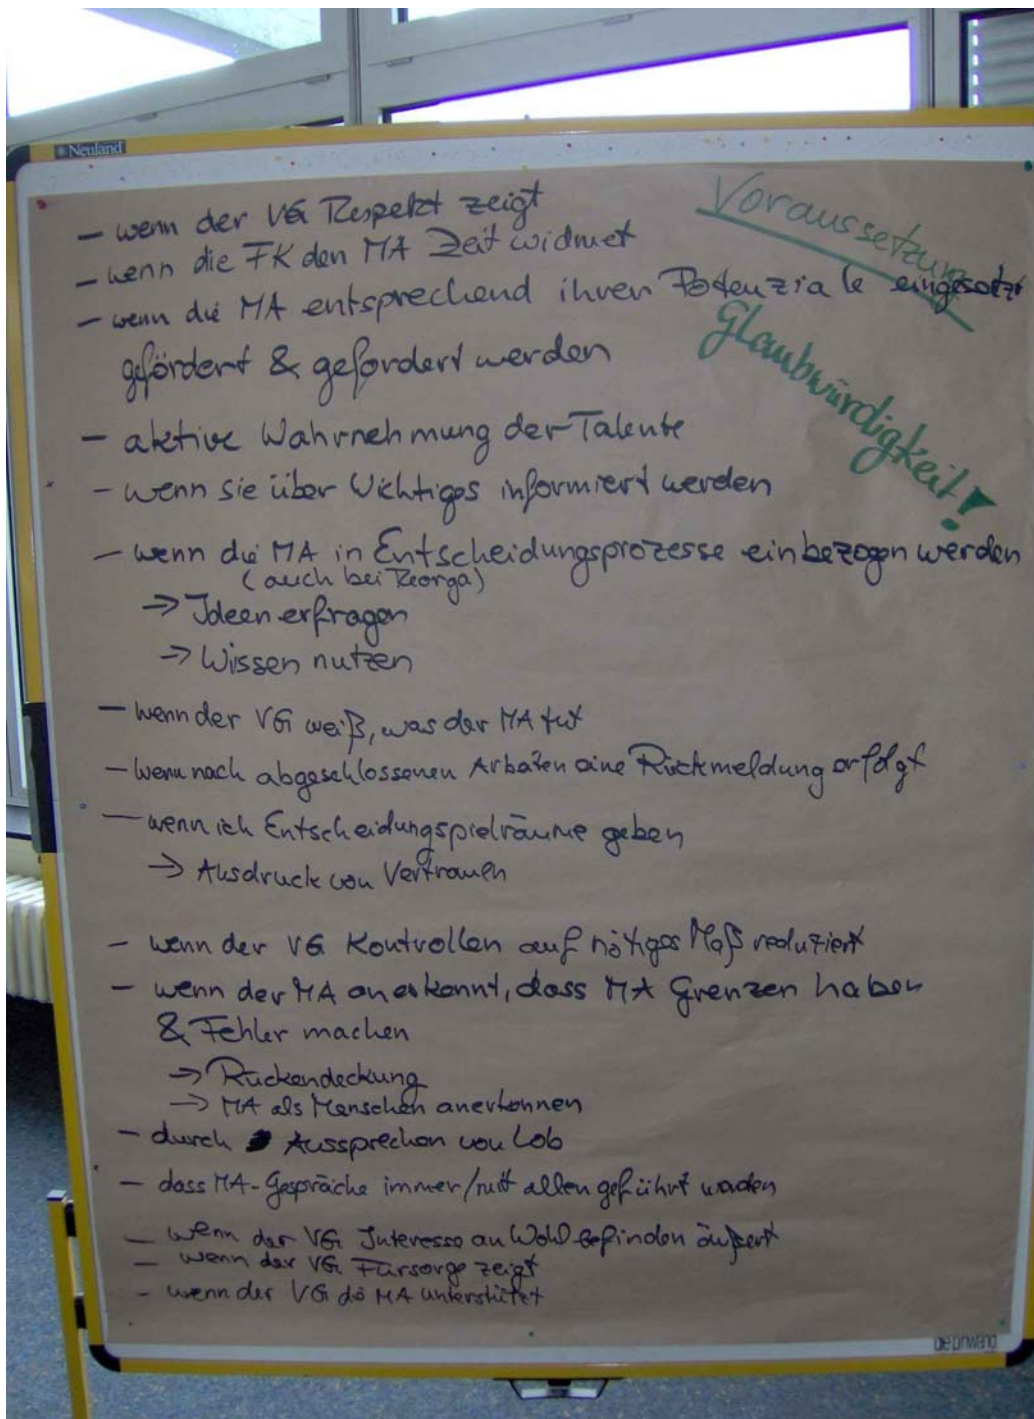 Neuland
Voraussetzung
Glaubwürdigkeit!
- wenn der VG Respekt zeigt
- wenn die FK den MA Zeit widmet
- wenn die MA entsprechend ihren Potenziale eingesetzt
gefördert & gefordert werden
- aktive Wahrnehmung der Talente
- wenn sie über Wichtiges informiert werden
- wenn die MA in Entscheidungsprozesse einbezogen werden
(auch bei Reorga)
→ Ideen erfragen
→ Wissen nutzen
- wenn der VG weiß, was der MA tut
- wenn nach abgeschlossenen Arbeiten eine Rückmeldung erfolgt
- wenn ich Entscheidungspielräume geben
→ Ausdruck von Vertrauen
- wenn der VG Kontrollen auf nötiges Maß reduziert
- wenn der MA anerkannt, dass MA Grenzen haben
& Fehler machen
→ Rückendeckung
→ MA als Menschen anerkennen
- durch Aussprechen von Lob
- dass MA-Gespräche immer/mit allen geführt werden
- wenn der VG Interesse an Wohlbefinden äußert
- wenn der VG Fürsorge zeigt
- wenn der VG MA unterstützt
die pinwand